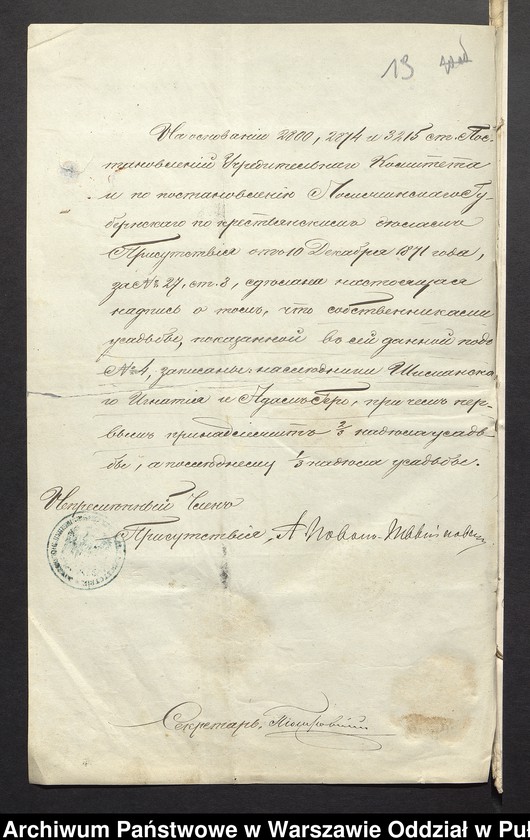 13
На основаніи 2800, 2874 и 3215 ст. Пос-
тановленій Учредительнаго Комитета
и по постановленію Гу-
бернскаго по крестьянскимъ дѣламъ
Присутствія отъ 10 Декабря 1871 года,
за № 27, ст. 8, сдѣлана настоящая
надпись о томъ, что собственниками
усадьбы, показанной въ сей данной подъ
№ 4, записаны: наслѣдники Шиманска-
го Игнатія и Адамъ Геро, при чемъ пер-
вымъ принадлежитъ 2/3 надѣла усадь-
бы, а послѣднему 1/3 надѣла усадьбы.
Непремѣнный Членъ
Присутствія, А
Секретарь,
Archiwum Państwowe w Warszawie Oddział w Puł